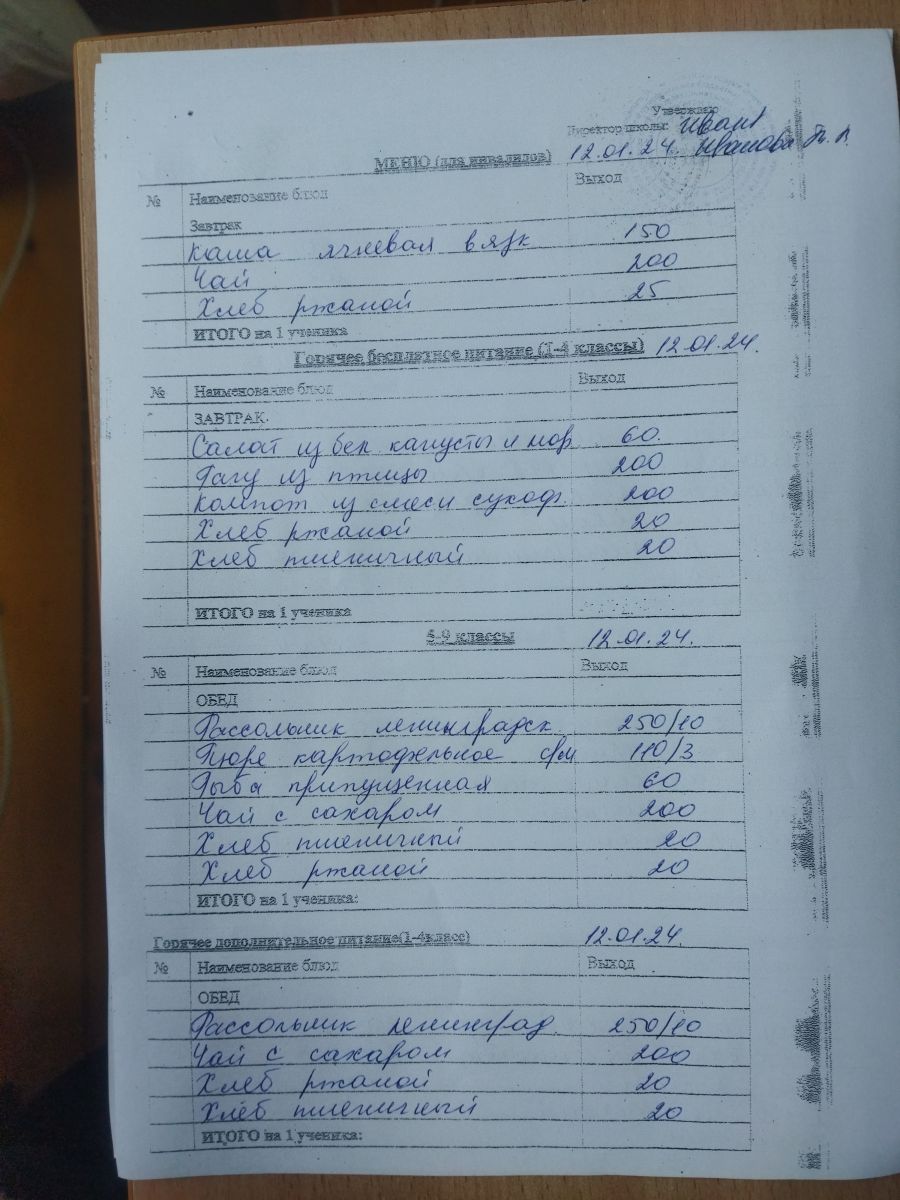 Утверждаю
Директор школы:
МЕНЮ (для инвалидов) 12.01.24. Иванова
№ Наименование блюд Выход
Завтрак
Каша ячневая вязк 150
Чай 200
Хлеб ржаной 25
ИТОГО на 1 ученика
Горячее бесплатное питание (1-4 классы) 12.01.24.
№ Наименование блюд Выход
ЗАВТРАК.
Салат из бел капусты и мор. 60.
Рагу из птицы 200
Компот из смеси сухоф. 200
Хлеб ржаной 20
Хлеб пшеничный 20
ИТОГО на 1 ученика
5-9 классы 12.01.24.
№ Наименование блюд Выход
ОБЕД
Рассольник ленинградск. 250/10
Пюре картофельное с/м 110/3
Рыба припущенная 60
Чай с сахаром 200
Хлеб пшеничный 20
Хлеб ржаной 20
ИТОГО на 1 ученика:
Горячее дополнительное питание(1-4класс) 12.01.24.
№ Наименование блюд Выход
ОБЕД
Рассольник ленинград. 250/10
Чай с сахаром 200
Хлеб ржаной 20
Хлеб пшеничный 20
ИТОГО на 1 ученика: